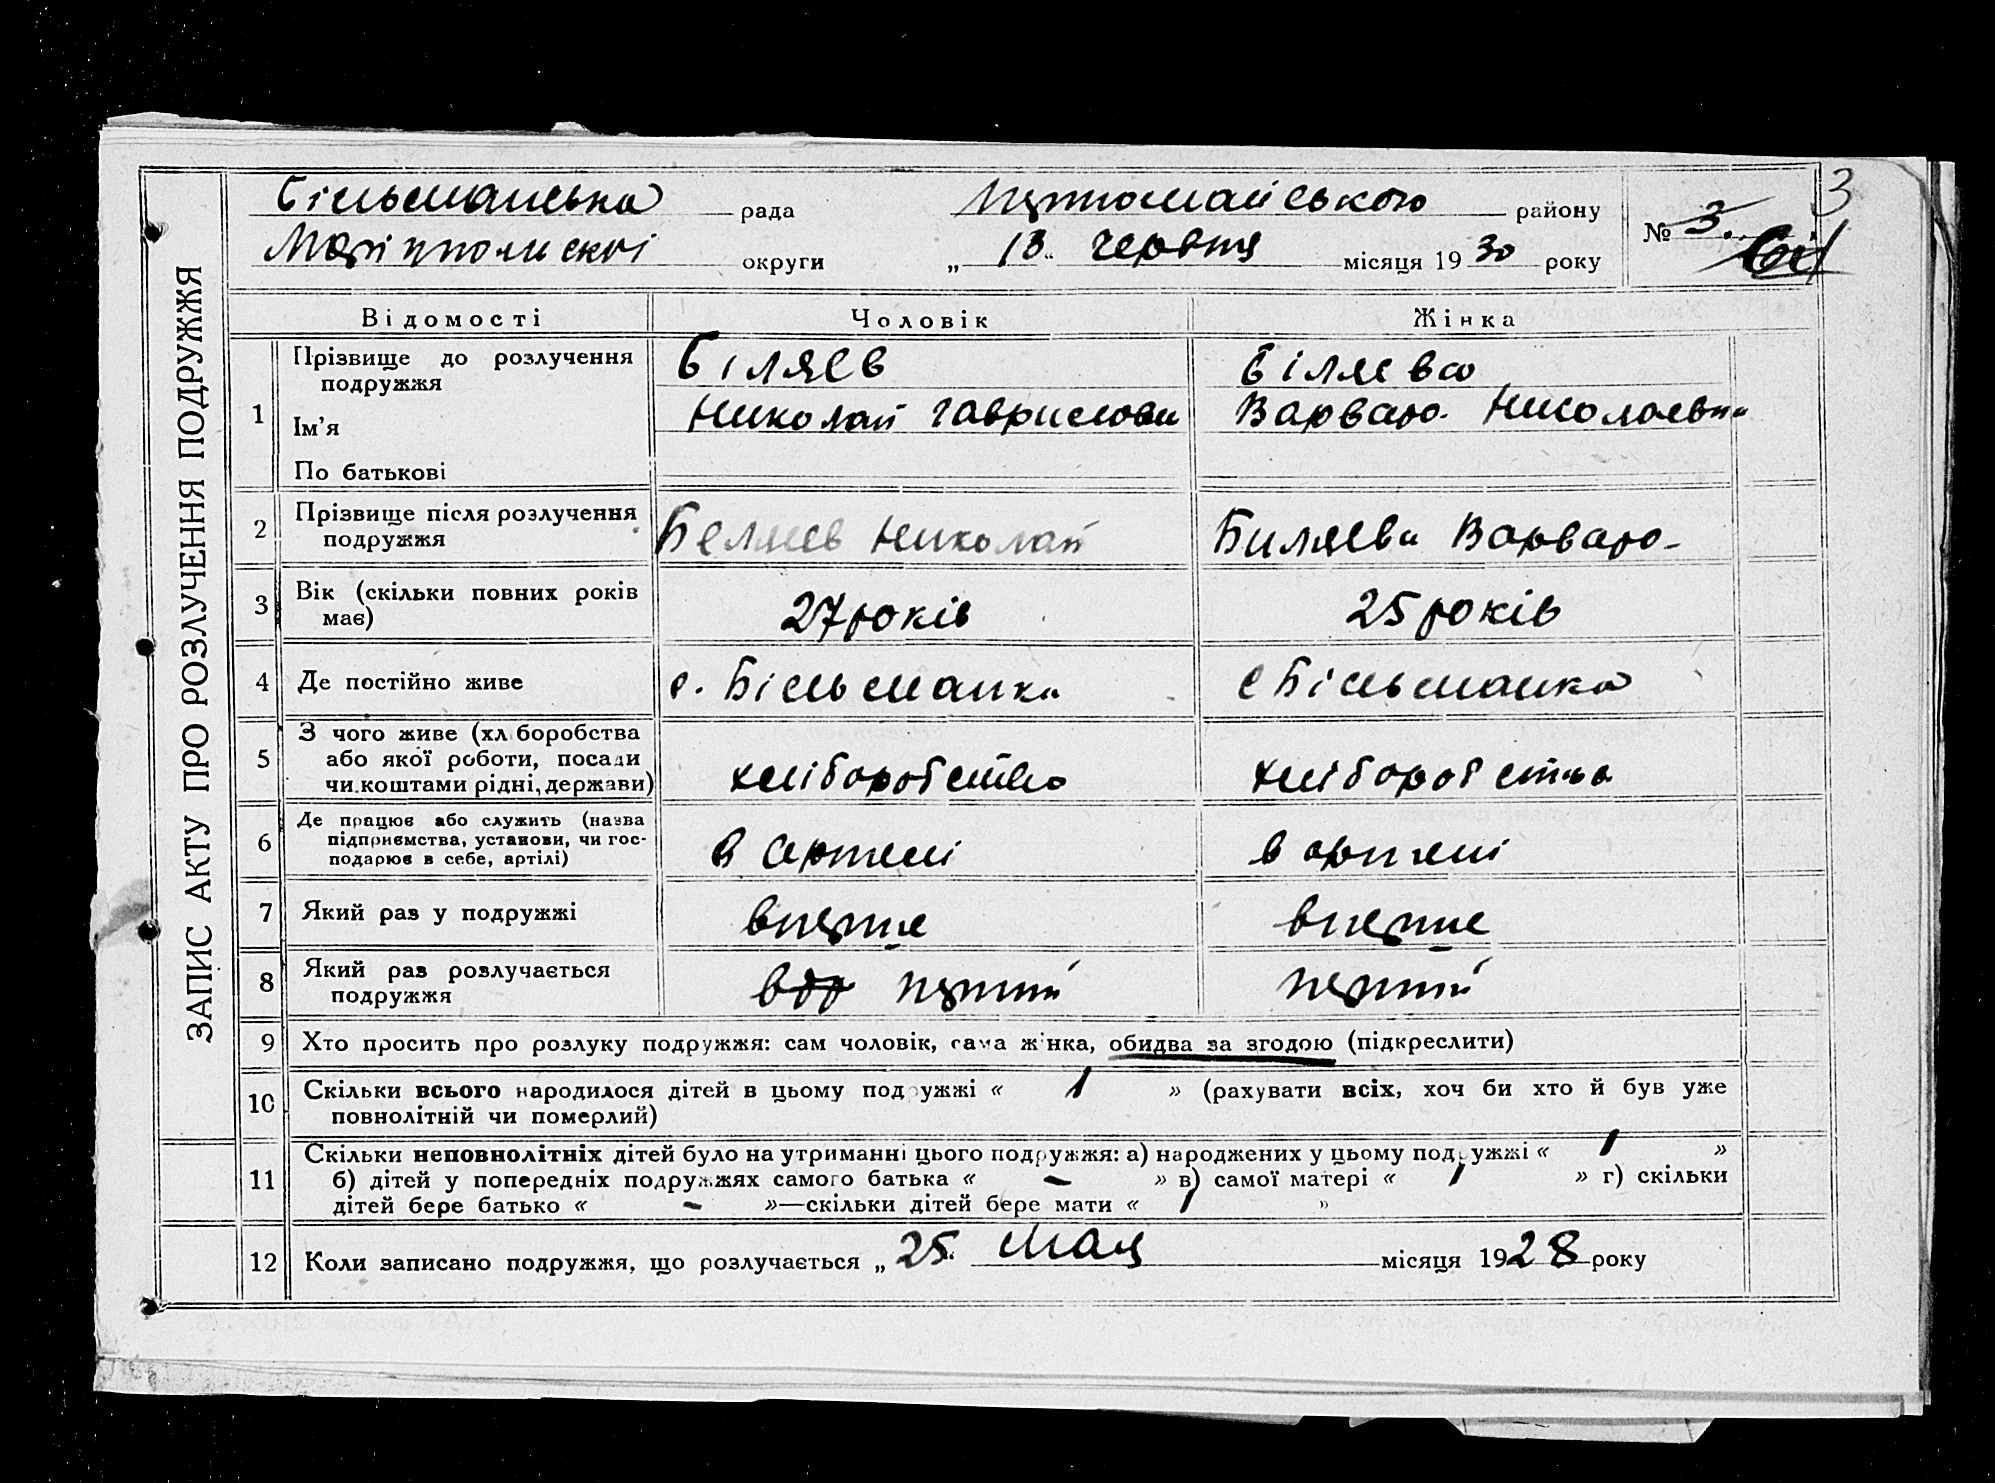 ЗАПИС АКТУ ПРО РОЗЛУЧЕННЯ ПОДРУЖЖЯ
3
Більманська рада Першомайського району
№ 3.
Маріпполискої округи „ 13 " червня місяця 1930 року
Відомості Чоловік Жінка
1 Прізвище до розлучення подружжя Біляєв Біляєва
Ім'я Николай Гаврилови Варвара Николаевна
По батькові
2 Прізвище після розлучення подружжя Беляев Николай Биляєва Варвара
3 Вік (скільки повних років має) 27 років 25 років
4 Де постійно живе с. Більманка с Більманка
5 З чого живе (хліборобства або якої роботи, посади чи коштами рідні, держави) хліборобство хліборобства
6 Де працює або служить (назва підприємства, установи, чи господарює в себе, артілі) в артелі в артелі
7 Який раз у подружжі вперше вперше
8 Який раз розлучається подружжя перший перший
9 Хто просить про розлуку подружжя: сам чоловік, сама жінка, обидва за згодою (підкреслити)
10 Скільки всього народилося дітей в цьому подружжі « 1 » (рахувати всіх, хоч би хто й був уже
повнолітній чи померлий)
11 Скільки неповнолітніх дітей було на утриманні цього подружжя: а) народжених у цьому подружжі « 1 »
б) дітей у попередніх подружжях самого батька « – » в) самої матері « 1 » г) скільки
дітей бере батько « – »—скільки дітей бере мати « 1 »
12 Коли записано подружжя, що розлучається „ 25 " мая місяця 1928 року